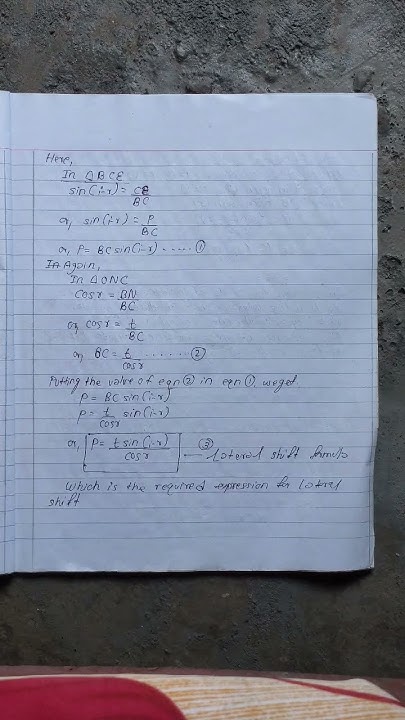 Here,
In △BCE
sin(i-r) = CE/BC
or, sin(i-r) = P/BC
or, P = BC sin(i-r) ...... ①
Again,
In △ONC
cosr = BN/BC
or, cosr = t/BC
or, BC = t/cosr ....... ②
Putting the value of eqn ② in eqn ①, we get
P = BC sin(i-r)
P = t/cosr sin(i-r)
or, P = t sin(i-r)/cosr — ③ lateral shift formula
Which is the required expression for lateral
shift